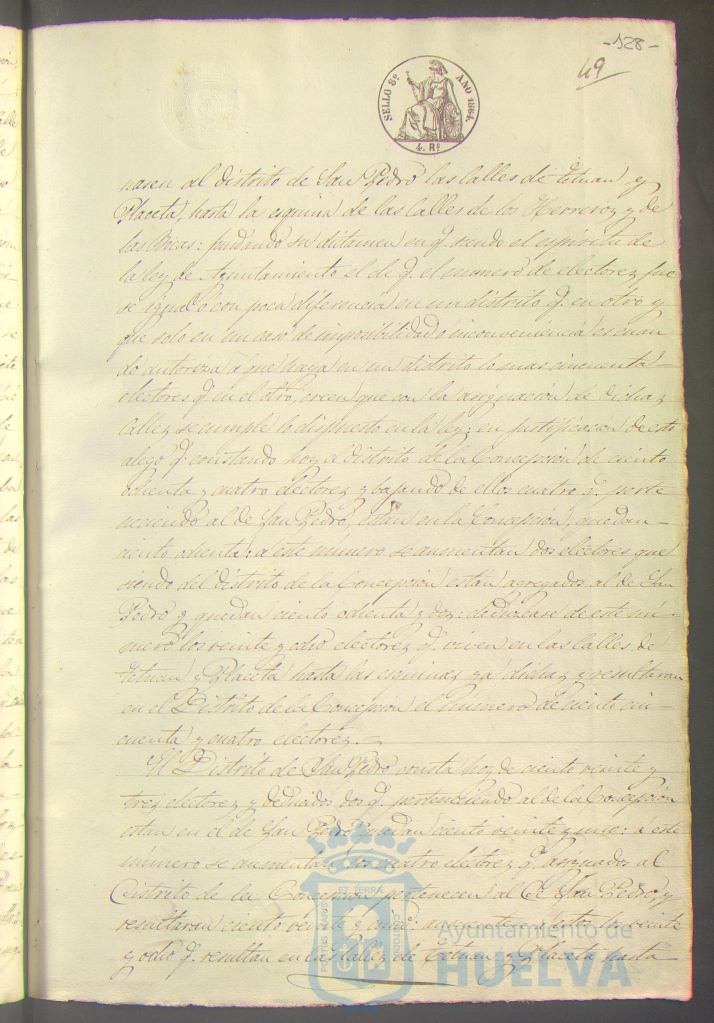 -128-
49
SELLO 8º AÑO 1864.
4. Rs
nasen al distrito de San Pedro las Calles de Tetuan y
Placeta, hasta la esquina de las calles de los Herreros, y de
las Bocas: fundando su dictamen en q. siendo el espiritu de
la ley de Ayuntamiento el de q. el numero de electores, fue
se igual o con poca diferencia en un distrito q. en otro y
que solo en un caso de imposibilidad o inconveniencia es cuan
do autoriza á que haya en un distrito lo mas cincuenta
electores q. en el otro, creen que con la asignacion de dichas
Calles se cumple lo dispuesto en la ley: en justificacion de esto
alego q. constando hoy el distrito de la Concepcion de ciento
ochenta y cuatro electores y bajando de ellos cuatro q. perte
neciendo al de San Pedro, estan en la Concepcion, quedan
ciento ochenta: a este número se aumentan dos electores que
siendo del distrito de la Concepcion estan agregados al de San
Pedro y quedan ciento ochenta y dos: deduzcase de este nú-
mero los veinte y ocho electores q. viven en las Calles de
Tetuan y Placeta hasta las esquinas ya dichas y resultaran
en el Distrito de la Concepcion el numero de ciento cin-
cuenta y cuatro electores.
El Distrito de San Pedro consta hoy de ciento veinte y
tres electores y deducidos dos q. perteneciendo al de la Concepcion
estan en el de San Pedro quedan ciento veinte y uno: á este
número se aumentan los cuatro electores q. asignados al
Distrito de la Concepcion pertenecen al de San Pedro, y
resultaran ciento veinte y cinco: veinte
y ocho q. resultan en las Calles de Tetuan y Placeta hasta
Ayuntamiento de
HUELVA